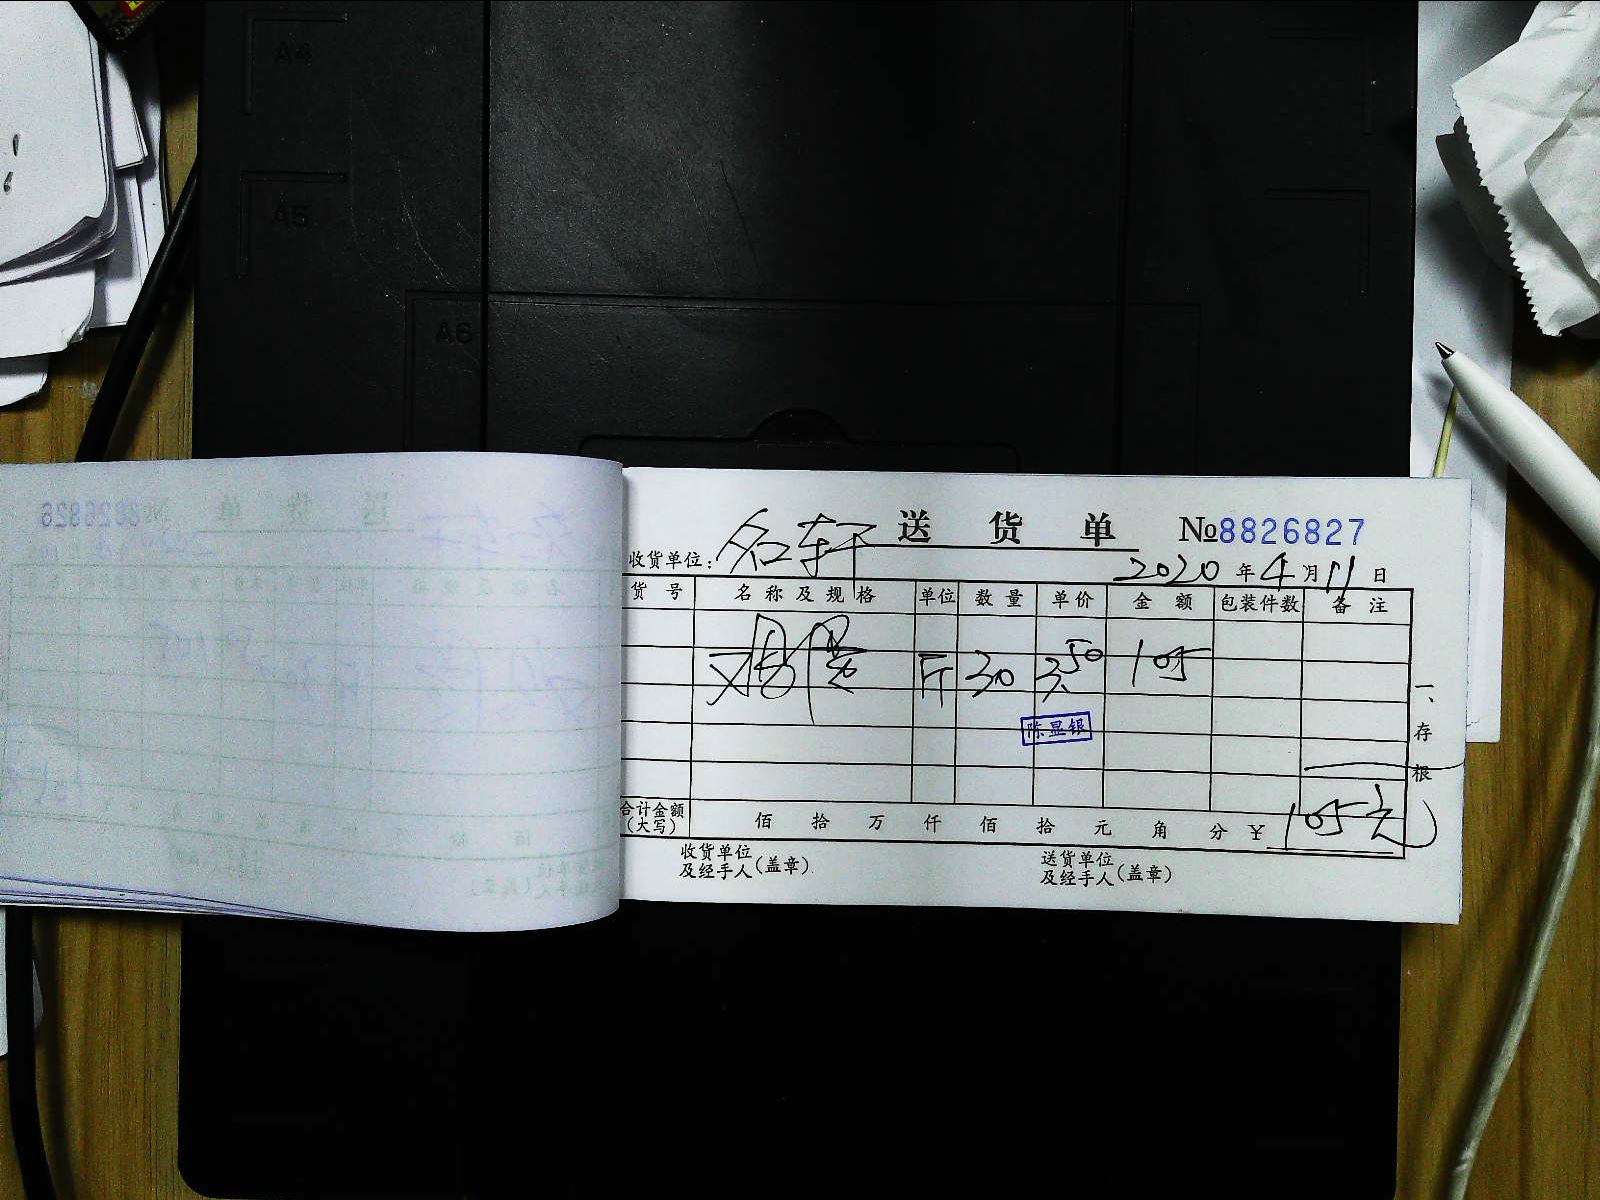 A4
A5
A6
送货单 №8826827
收货单位: 名轩
2020年4月11日
货号 名称及规格 单位 数量 单价 金额 包装件数 备注
斤 30 3.50 105
陈显银
一、存根
合计金额(大写) 佰 拾 万 仟 佰 拾 元 角 分 ¥ 105元
收货单位及经手人(盖章)
送货单位及经手人(盖章)
8826826